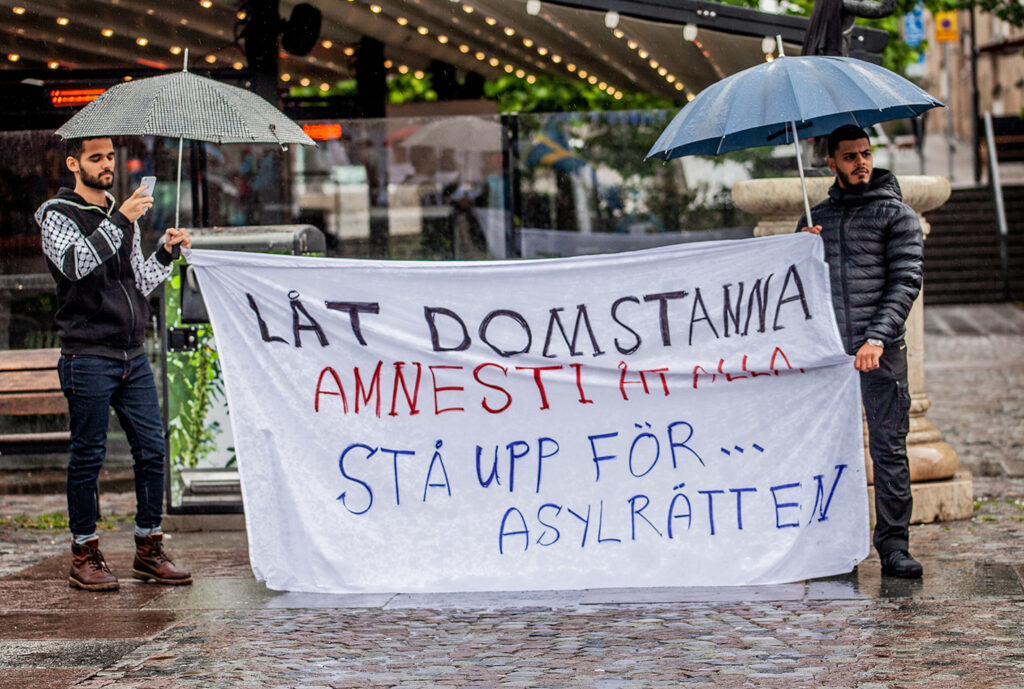 LÅT DOM STANNA
AMNESTI ÅT ALLA
STÅ UPP FÖR...
ASYLRÄTTEN